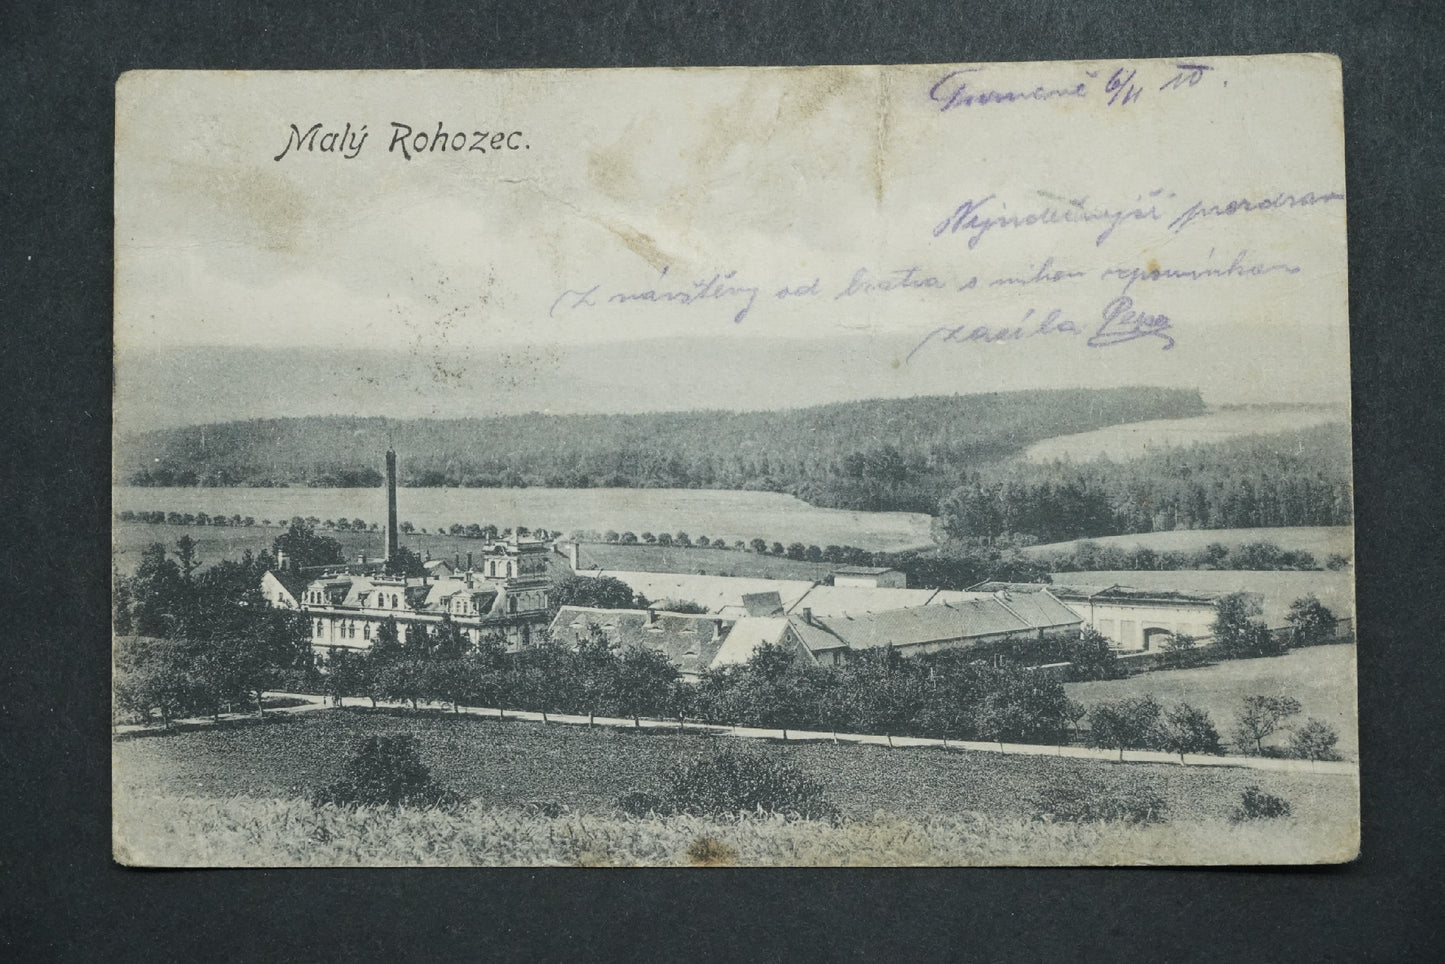 Malý Rohozec.
6/II 10.
Nejsrdečnější pozdrav
z návštěvy od bratra s milou vzpomínkou
zasílá Pepa